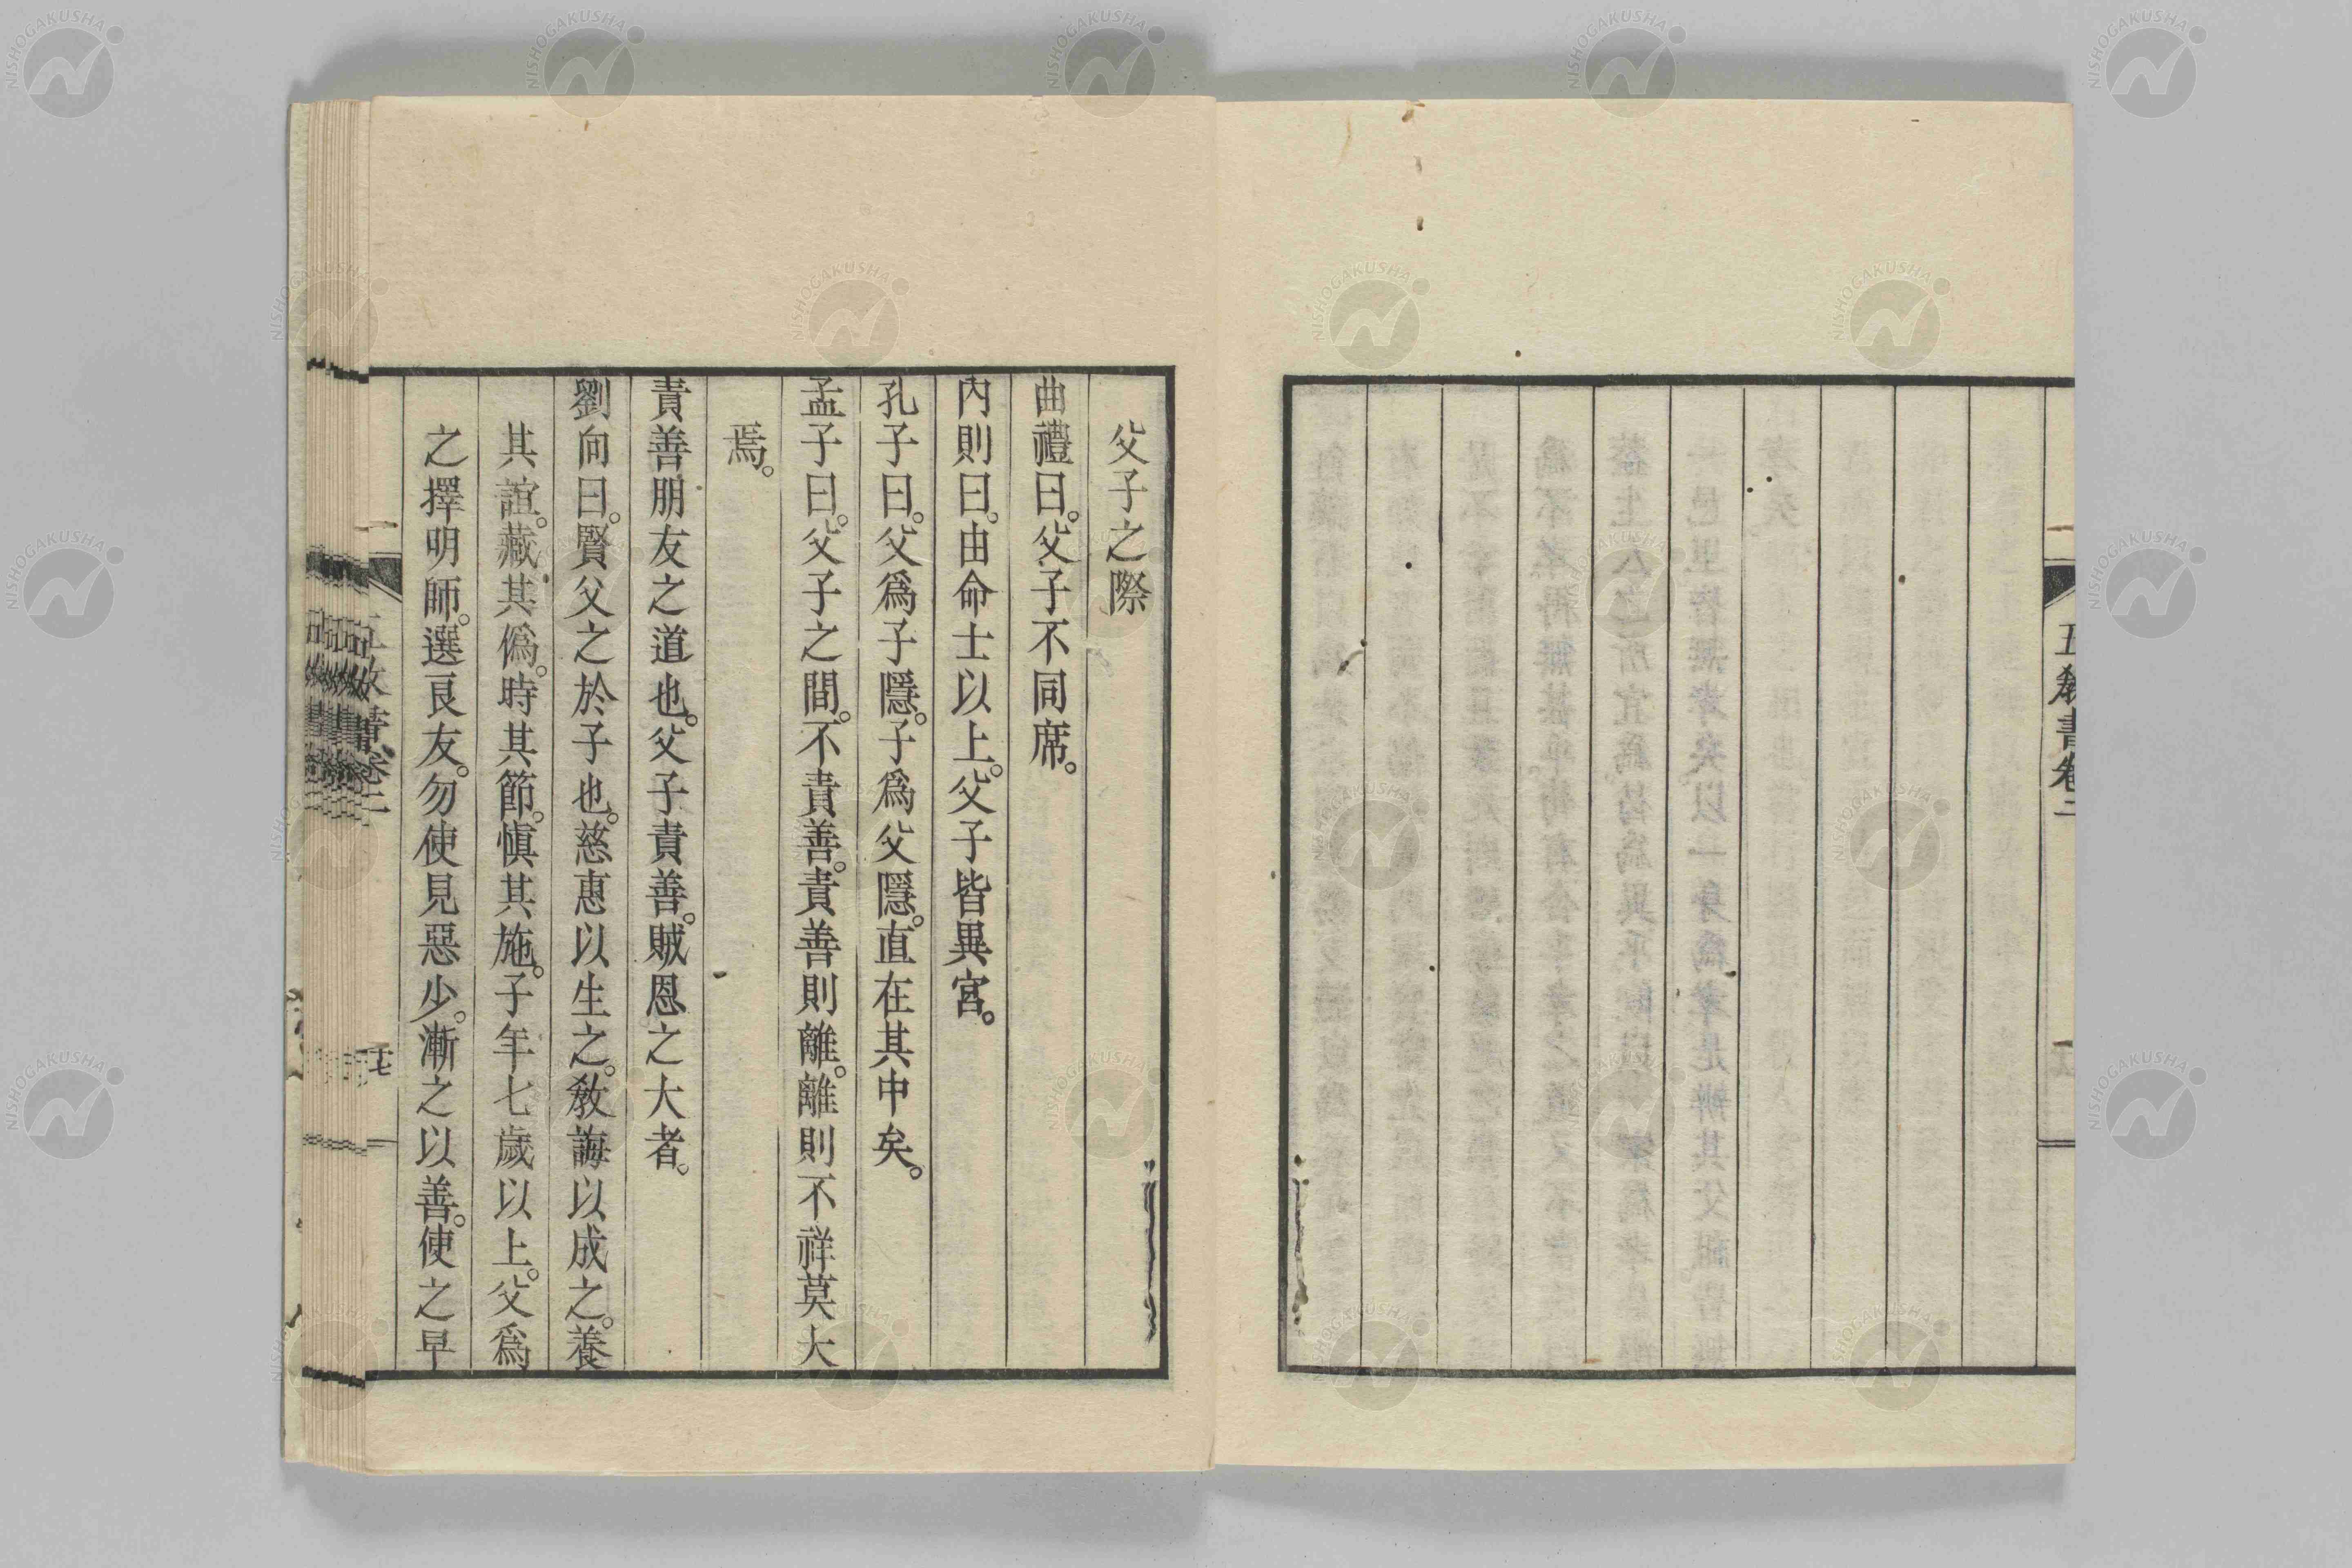 五敎書卷二
父子之際
曲禮曰。父子不同席。
內則曰。由命士以上。父子皆異宮。
孔子曰。父爲子隱。子爲父隱。直在其中矣。
孟子曰。父子之間。不責善。責善則離。離則不祥莫大
焉。
責善朋友之道也。父子責善。賊恩之大者。
劉向曰。賢父之於子也。慈惠以生之。敎誨以成之。養
其誼。藏其僞。時其節。愼其施。子年七歲以上。父爲
之擇明師。選良友。勿使見惡少。漸之以善。使之早
十七
NISHOGAKUSHA